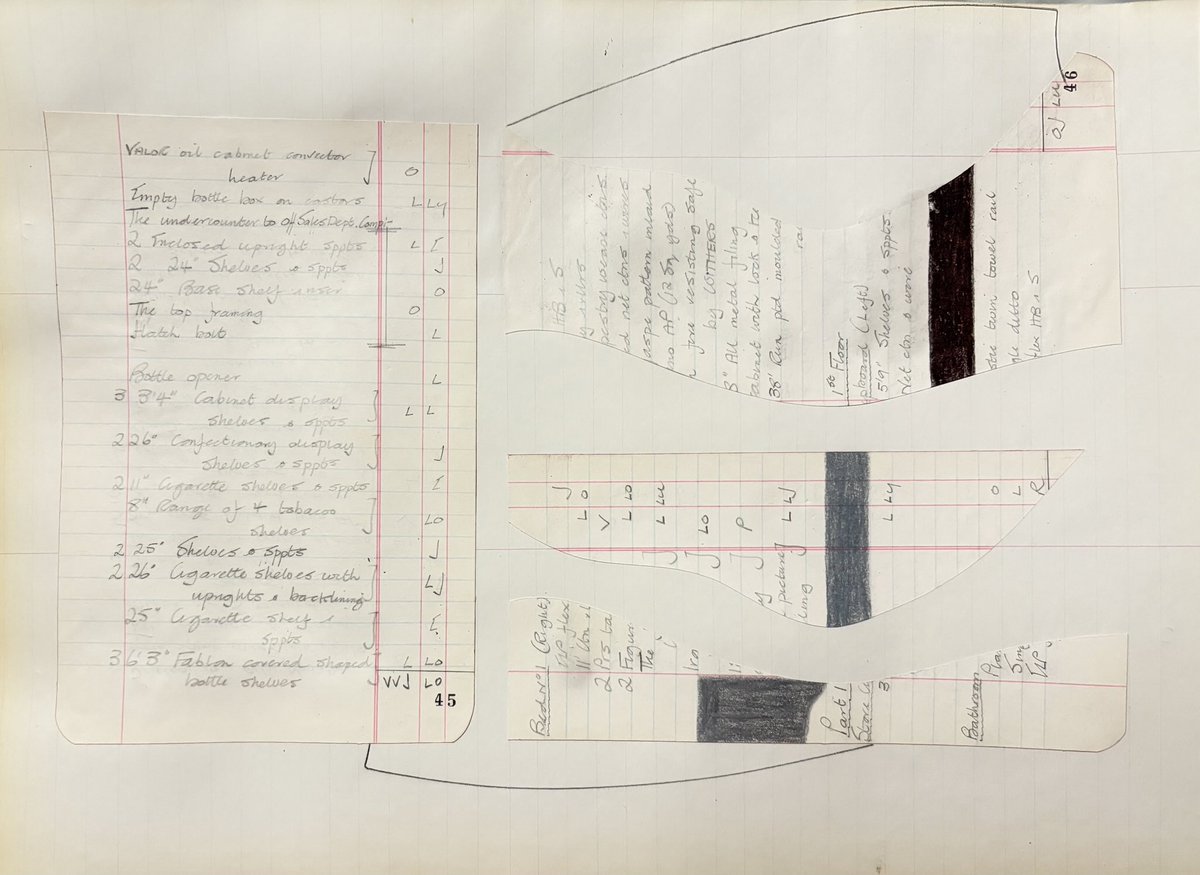 VALOR oil cabinet convector
heater
O
Empty bottle box on castors L Ly
The undercounter to Off Sales Dept. Comp:-
2 Inclosed upright sppts L I
2 24" Shelves & sppts J
24" Base shelf O
The top framing O
Hatch bolt L
Bottle opener L
3 3'4" Cabinet display
shelves & sppts L L
2 26" Confectionary display
shelves & sppts J
2 11" Cigarette shelves & sppts I
8" Range of 4 tobacco
shelves LO
2 25" Shelves & sppts J
2 26" Cigarette shelves with
uprights & backlining LJ
25" Cigarette shelf &
sppts I
3 6'3" Fablon covered shaped L LO
bottle shelves VVJ LO
45
46
HB & S
aspe pattern inlaid
no AP (12 Sq yds)
fire resisting safe
by WITHERS
3" All metal filing
cabinet with lock & ke
38" Run ptd moulded
rai
1st Floor
pboard (Left)
5'9" Shelves & sppts.
Net ctn & wire
twin towel rail
gle ditto
HB & S
J
L O
V
L LO
L Lu
LO
P
L LJ
L Ly
O
L
R
picture
ling
Bedrm 1 (Right)
flex
2 Prs ta
2 Figur
The
Iro
Part 1
3
Bathroom
Pla
Sim